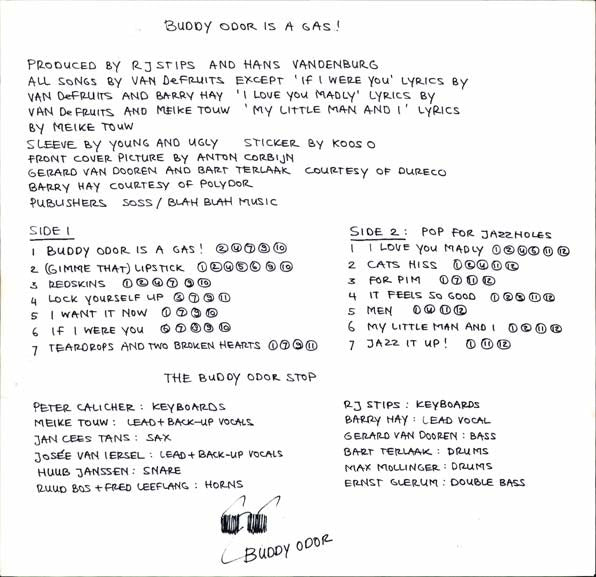 BUDDY ODOR IS A GAS!
PRODUCED BY RJ STIPS AND HANS VANDENBURG
ALL SONGS BY VAN DeFRUITS EXCEPT 'IF I WERE YOU' LYRICS BY
VAN DeFRUITS AND BARRY HAY 'I LOVE YOU MADLY' LYRICS BY
VAN DeFRUITS AND MEIKE TOUW 'MY LITTLE MAN AND I' LYRICS
BY MEIKE TOUW
SLEEVE BY YOUNG AND UGLY STICKER BY KOOS O
FRONT COVER PICTURE BY ANTON CORBIJN
GERARD VAN DOOREN AND BART TERLAAK COURTESY OF DURECO
BARRY HAY COURTESY OF POLYDOR
PUBLISHERS SOSS / BLAH BLAH MUSIC
SIDE 1
1 BUDDY ODOR IS A GAS!
2 (GIMME THAT) LIPSTICK
3 REDSKINS
4 LOCK YOURSELF UP
5 I WANT IT NOW
6 IF I WERE YOU
7 TEARDROPS AND TWO BROKEN HEARTS
SIDE 2: POP FOR JAZZHOLES
1 I LOVE YOU MADLY
2 CATS HISS
3 FOR PIM
4 IT FEELS SO GOOD
5 MEN
6 MY LITTLE MAN AND I
7 JAZZ IT UP!
THE BUDDY ODOR STOP
PETER CALICHER: KEYBOARDS
MEIKE TOUW: LEAD + BACK-UP VOCALS
JAN CEES TANS: SAX
JOSÉE VAN IERSEL: LEAD + BACK-UP VOCALS
HUUB JANSSEN: SNARE
RUUD BOS + FRED LEEFLANG: HORNS
RJ STIPS: KEYBOARDS
BARRY HAY: LEAD VOCAL
GERARD VAN DOOREN: BASS
BART TERLAAK: DRUMS
MAX MOLLINGER: DRUMS
ERNST GLERUM: DOUBLE BASS
BUDDY ODOR